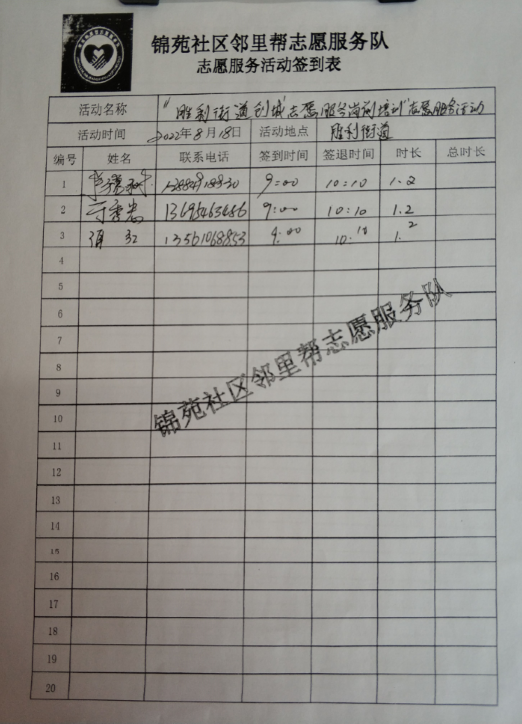 锦苑社区邻里帮志愿服务队
志愿服务活动签到表
活动名称 "胜利街道创城志愿服务岗前培训"志愿服务活动
活动时间 2022年8月18日 活动地点 胜利街道
编号 姓名 联系电话 签到时间 签退时间 时长 总时长
1 9:00 10:10 1.2
2 13695463486 9:00 10:10 1.2
3 13561068853 9:00 10:10 1.2
4
5
6
7
8
9
10
11
12
13
14
15
16
17
18
19
20
锦苑社区邻里帮志愿服务队